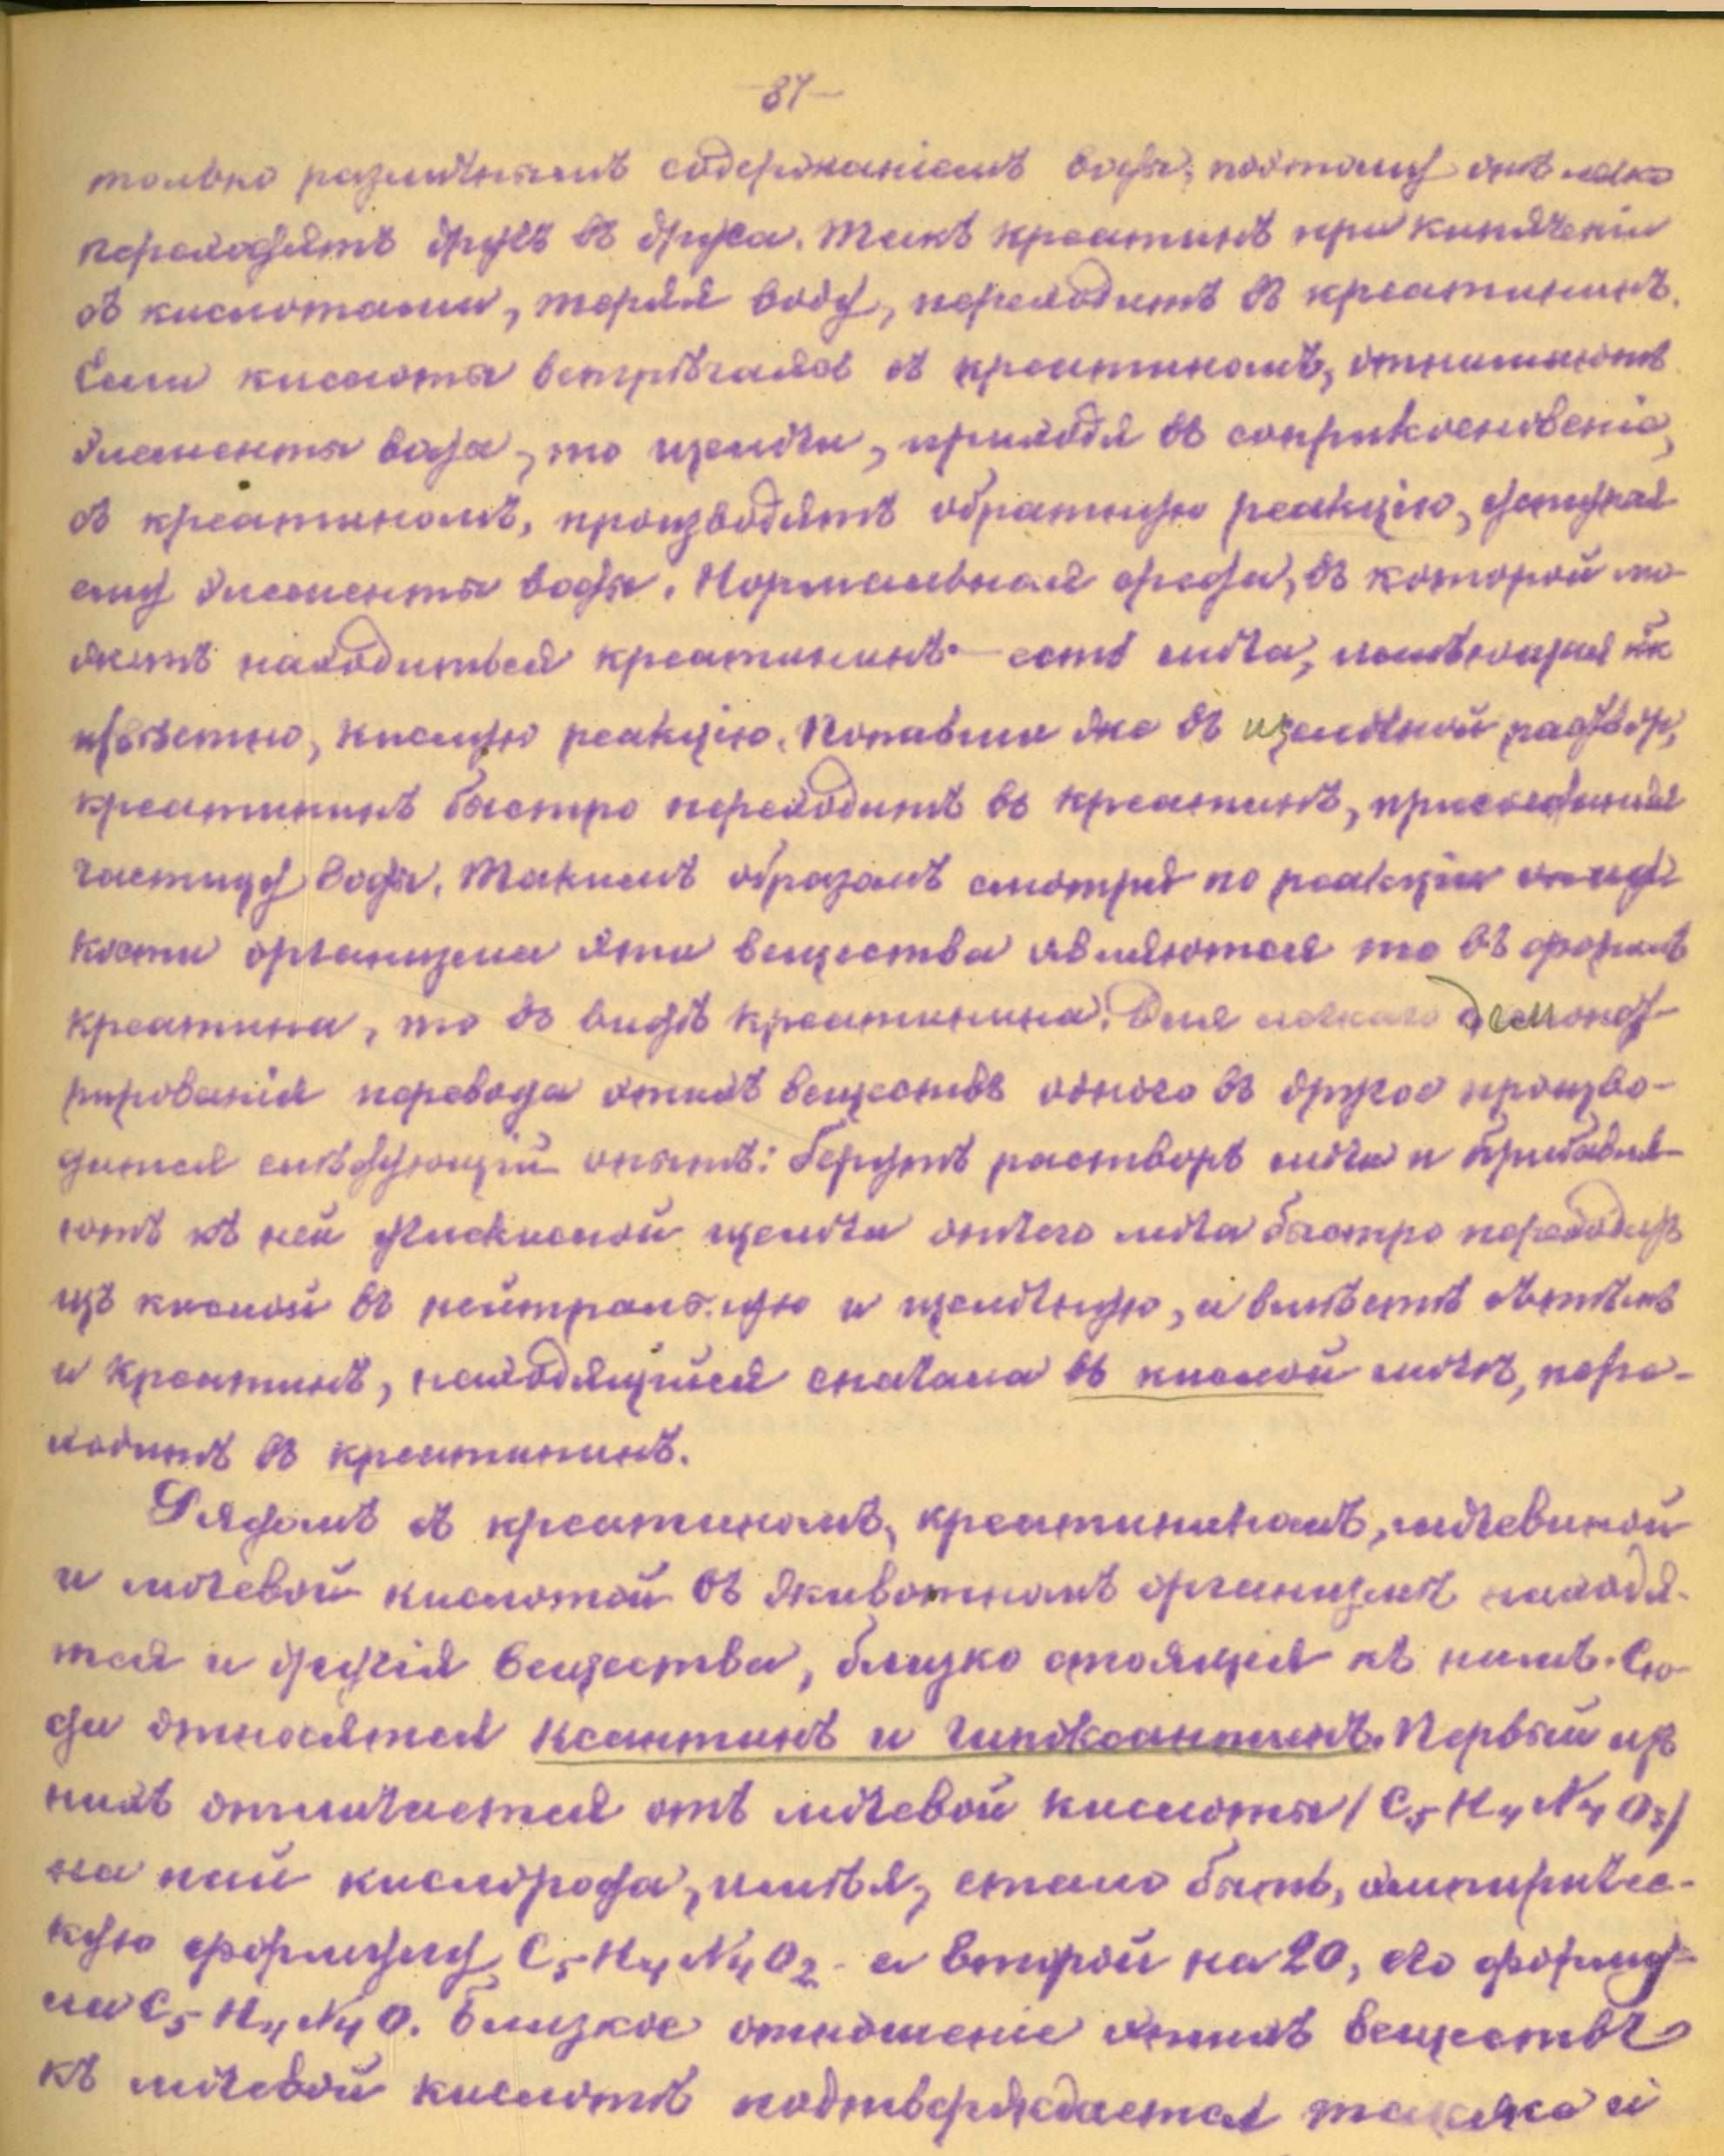 -87-
только различнымъ содержаніемъ воды; поэтому онѣ легко
переходятъ другъ въ друга. Такъ креатинъ при кипяченіи
съ кислотами, теряя воду, переходитъ въ креатининъ.
Если кислоты встрѣчаясь съ креатиномъ, отнимаютъ
элементы воды, то щелочи, приходя въ соприкосновеніе,
съ креатиномъ, производятъ обратную реакцію, уступая
ему элементы воды. Нормальная среда, въ которой мо-
жетъ находиться креатининъ - есть моча, имѣющая какъ
извѣстно, кислую реакцію. Попавши же въ щелочной раствор,
креатининъ быстро переходитъ въ креатинъ, присоединяя
частицу воды. Такимъ образомъ смотря по реакціи жид-
кости организма эти вещества являются то въ формѣ
креатина, то въ видѣ креатинина. Для легкаго демонст-
рированія перевода этихъ веществъ одного въ другое произво-
дится слѣдующій опытъ: берутъ растворъ мочи и прибавля-
ютъ къ ней щелочи отчего моча быстро переходитъ
изъ кислой въ нейтральную и щелочную, а вмѣстѣ съ тѣмъ
и креатинъ, находящійся сначала въ кислой мочѣ, пере-
ходитъ въ креатининъ.
Рядомъ съ креатиномъ, креатининомъ, мочевиной
и мочевой кислотой въ животномъ организмѣ находя-
тся и другія вещества, близко стоящія къ нимъ. Сю-
да относятся ксантинъ и гипоксантинъ. Первый изъ
нихъ отличается отъ мочевой кислоты (C5H4N4O3)
на пай кислорода, имѣя, стало быть, эмпиричес-
кую формулу C5H4N4O2 - а второй на 2O, его форму-
ла C5H4N4O. Близкое отношеніе этихъ веществъ
къ мочевой кислотѣ подтверждается также и